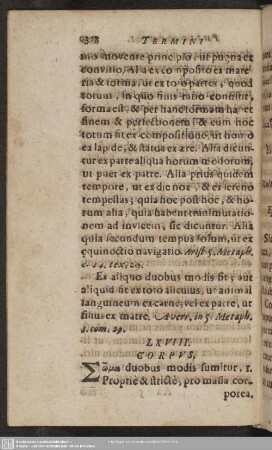 328 TERMINI
mo movente principio, ut pugna ex
convitio. Alia ex composito ex mate
ria & forma, ut ex toto partes, quod
totum, in quo finis ratio consistit,
forma est, & per hanc formam habet
finem & perfectionem & cum hoc
totum fit ex compositione, ut homo
ex lapide, & statua ex aere. Alia dicun-
tur ex parte aliqua horum modorum,
ut puer ex patre. Alia prius quidem
tempore, ut ex die nox, & ex sereno
tempestas; quia hoc post hoc, & ho-
rum alia, quia habent transmutatio-
nem ad invicem, sic dicuntur. Alia
quia secundum tempus solum, ut ex
equinoctio navigatio. Arist. 5. Metaph.
c. 24. tex. 29.
Ex aliquo duobus modis fit, aut
aliquid fit ex toto alicuius, ut animal
sanguineum ex carne, vel ex parte, ut
filius ex matre. Averr. in 5. Metaph.
com. 29.
LXVIII.
CORPVS,
Σῶμα duobus modis sumitur. 1.
Propriè & strictè, pro massa cor-
porea.